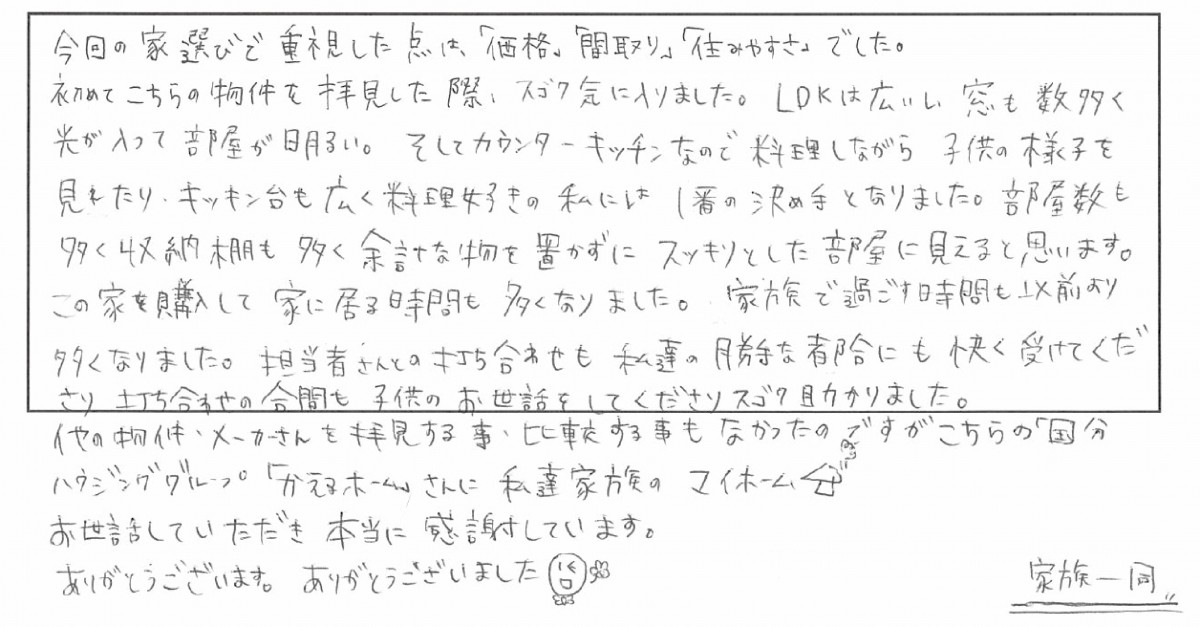 今回の家選びで重視した点は、「価格」「間取り」「住みやすさ」でした。
初めてこちらの物件を拝見した際、スゴク気に入りました。LDKは広いし窓も数多く
光が入って部屋が明るい。そしてカウンターキッチンなので料理しながら子供の様子を
見れたり、キッキン台も広く料理好きの私には1番の決め手となりました。部屋数も
多く収納棚も多く余計な物を置かずにスッキリとした部屋に見えると思います。
この家を購入して家に居る時間も多くなりました。家族で過ごす時間も以前より
多くなりました。担当者さんとの打ち合わせも私達の勝手な都合にも快く受けてくだ
さり打ち合わせの合間も子供のお世話をしてくださりスゴク助かりました。
他の物件・メーカーさんを拝見する事・比較する事もなかったのですがこちらの「国分
ハウジンググループ。「かえるホーム」さんに私達家族のマイホーム
お世話していただき本当に感謝しています。
ありがとうございます。ありがとうございました
家族一同